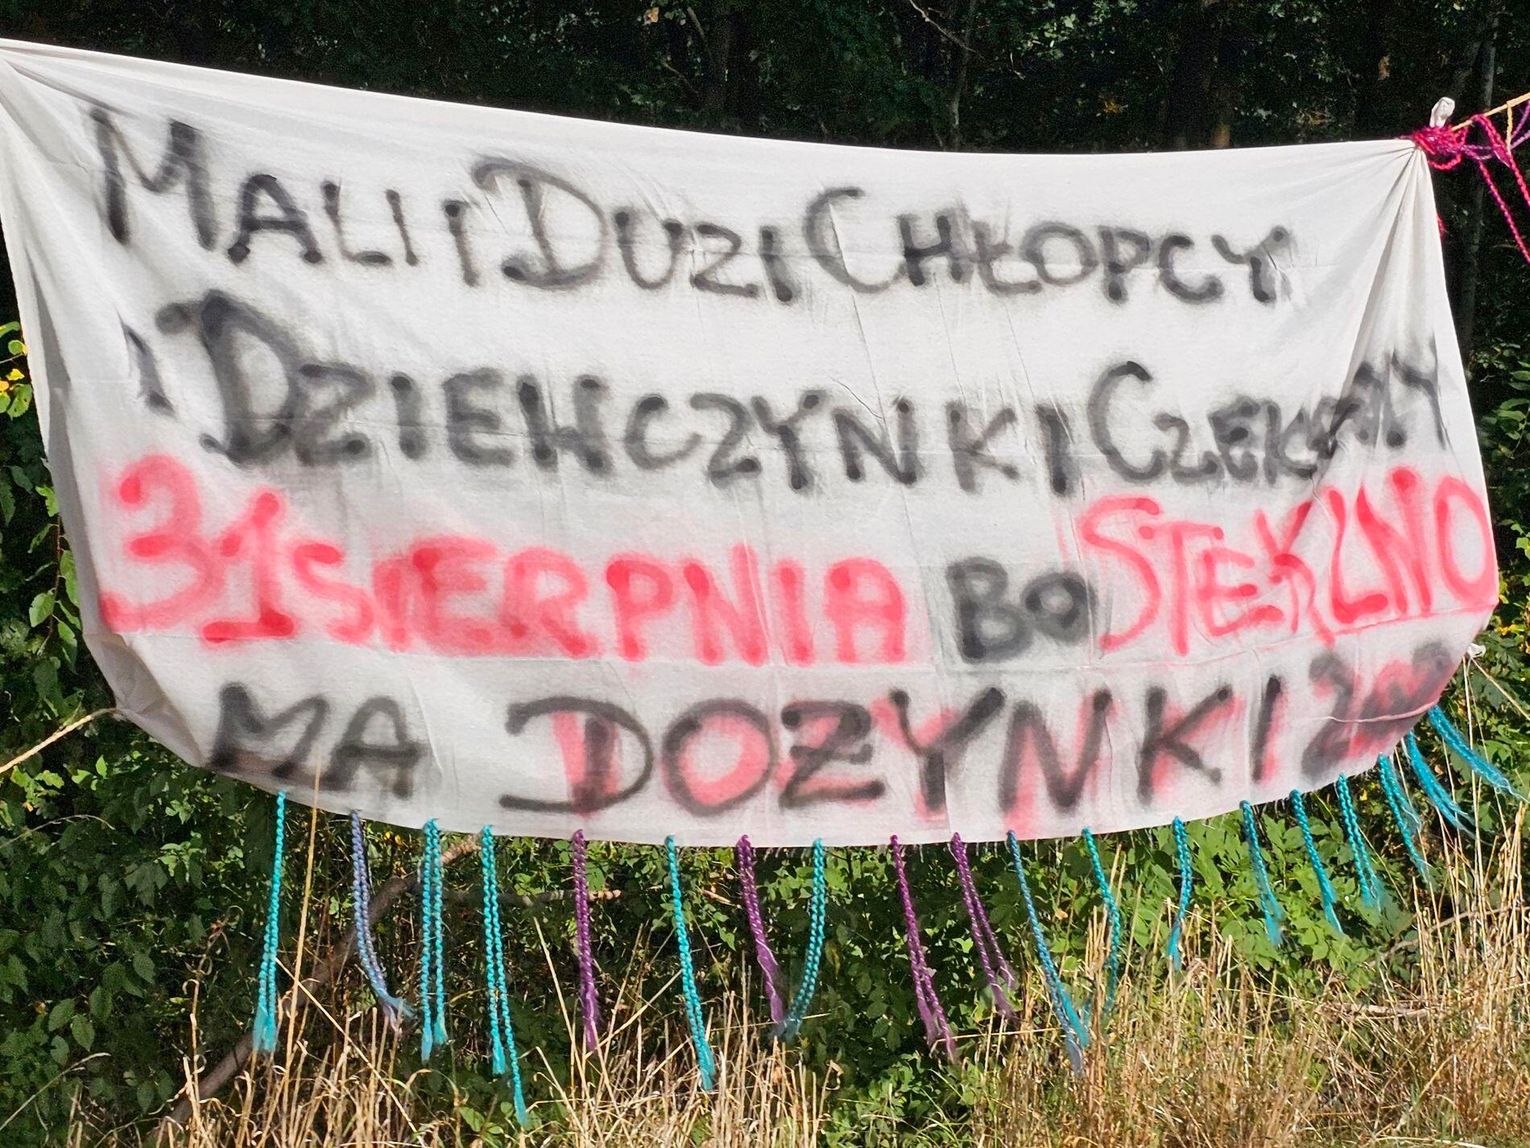 MALI I DUZI CHŁOPCY
I DZIEWCZYNKI CZEKAMY
31 SIERPNIA BO STEKLNO
MA DOZYNKI